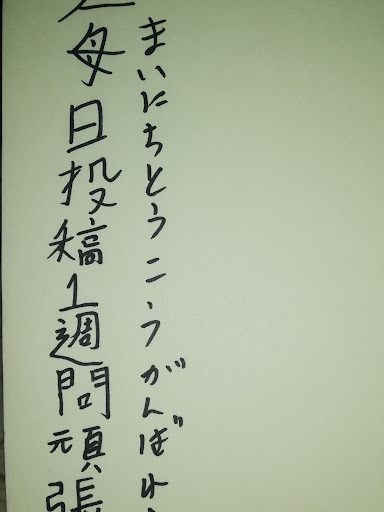 まいにちとうこうがんばれ
毎日投稿1週問頑張